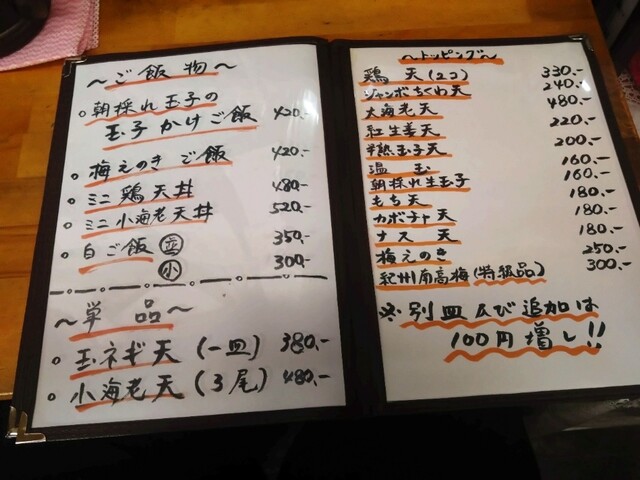 ～ご飯物～
。朝採れ玉子の
玉子かけご飯 420.-
。梅えのきご飯 420.-
。ミニ鶏天丼 480.-
。ミニ小海老天丼 520.-
。白ご飯 並 350.-
小 300.-
～単品～
。玉ネギ天(一皿) 380.-
。小海老天(3尾) 480.-
～トッピング～
鶏天(2コ) 330.-
ジャンボちくわ天 240.-
大海老天 480.-
紅生姜天 220.-
半熟玉子天 200.-
温玉 160.-
朝採れ生玉子 160.-
もち天 180.-
カボチャ天 180.-
ナス天 180.-
梅えのき 250.-
紀州南高梅(特級品) 300.-
※別皿及び追加は
100円増し!!